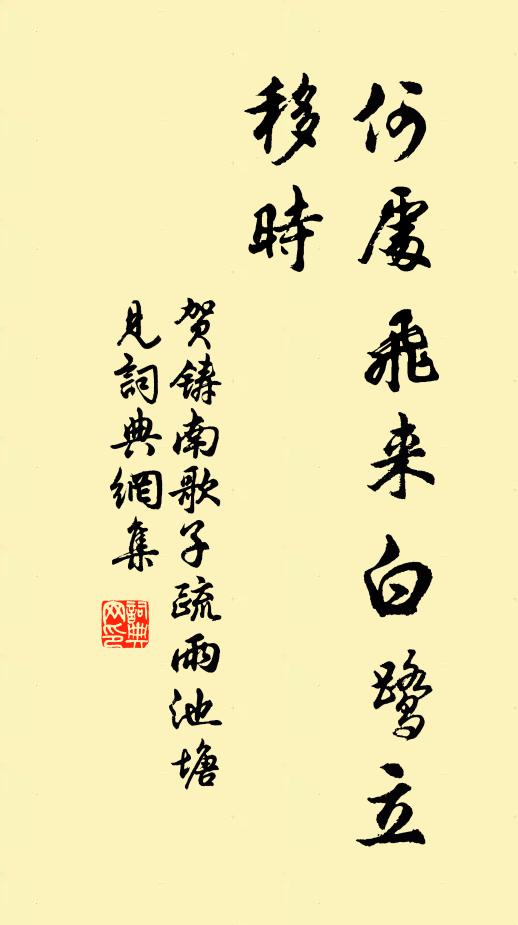 何處飛来白鷺立
移時
贺鑄南歌子疏雨池塘
見詞典網集
詞典
网印